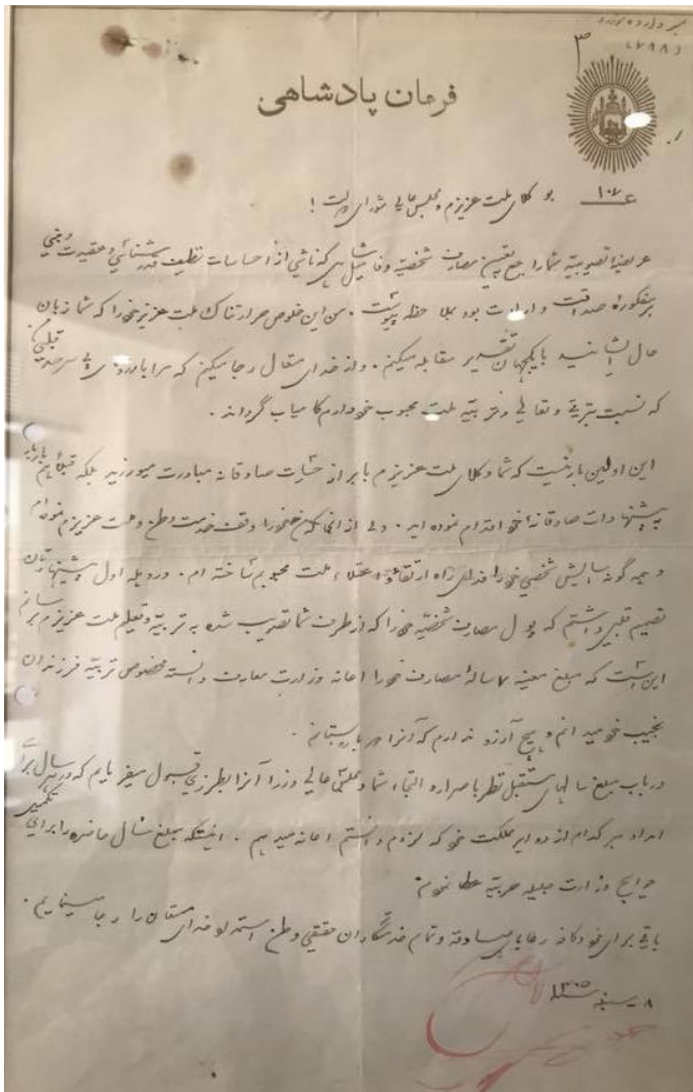 ۳
(۷۸۸)
فرمان پادشاهی
۱۰۷
بوکلای ملت عزیزم و مجلس عالی شورای دولت!
عریضهٔ تصویبیه شما راجع بتعیین مصارف شخصیه و فامیل شاهی که ناشی از احساسات نظیف قدرشناسی و عقیدت و مبنی
بر مفکورهٔ صداقت و ارادت بود بملاحظه پیوست. من این خلوص حرارتناک ملت عزیز خود را که شما زبان
حال ایشانید با یکجهان تقدیر مقابله میکنم. و از خدای متعال رجا میکنم که مرا بآرزوهای بی سرحد قلبی
که نسبت بترقی و تعالی و تربیه ملت محبوب خود دارم کامیاب گرداند.
این اولین بار نیست که شما وکلای ملت عزیزم بابراز حسیات صادقانه مبادرت میورزید بلکه قبلاً هم بار بار
پیشنهادات صادقانه خود اقدام نموده اید. ولی از آنجا که من خود را وقف خدمت وطن و ملت عزیزم نموده ام
و همه گونه آسایش شخصی خود را فدای راه ارتقاء و اعتلاء ملت محبوبم ساخته ام. در وهله اول پیشنهاد تان
تصمیم قلبی داشتم که پول مصارف شخصیه خود را که از طرف شما تصویب شده به تربیه و تعلیم ملت عزیزم برسانم
این است که مبلغ معینه ۷ ساله مصارف خود را اعانه وزارت معارف دانسته مخصوص تربیه فرزندان
نجیب خود میدانم و هیچ آرزو ندارم که آنرا بستانم.
در باب مبلغ سالهای مستقبل نظر باصرار و التجاء شما و مجلس عالی وزرا آنرا بطرزی قبول میفرمایم که در هر سال برای
امداد هر کدام از دوایر مملکت خود که لزوم دانستم اعانه میدهم. اینست که مبلغ امسال حاضره را برای تکمیل
حوایج وزارت جلیله حربیه عطا نمودم.
باقی برای خود و کافه رعایای صادقه و تمام خدمتگاران حقیقی وطن استمداد خدای مستعان را رجا مینمایم.
۸ سنبله ۱۳۰۵